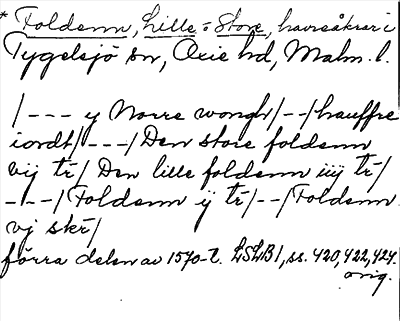 * Foldenn, Lille o Store, havreåkrar i
Tygelsjö sn, Oxie hd, Malm. l.
/--- y Norre wongh/--/hauffre
iordt/---/Den store foldenn
vij tr/ Den lille foldenn iiij tr/
---/Foldenn ij tr/--/Foldenn
vj skr/
förra delen av 1570-t. LSLB1, ss. 420, 422, 424.
orig.